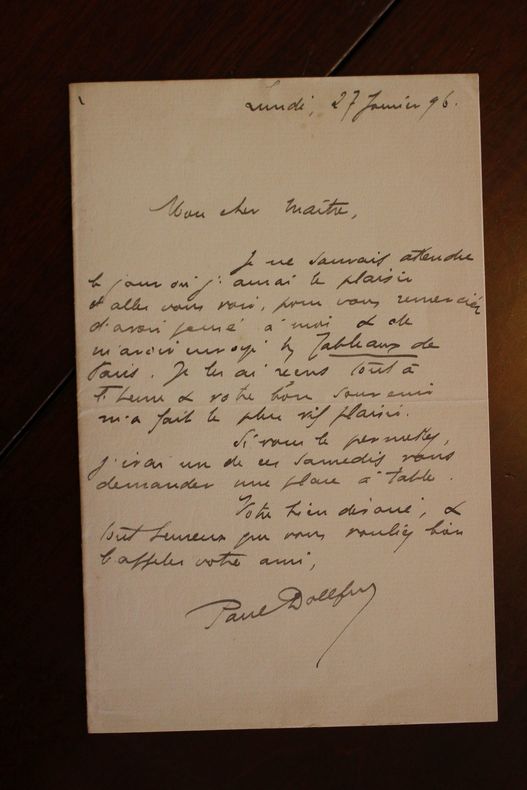 Lundi, 27 Janvier 96.
Mon cher Maître,
Je ne saurais attendre
le jour où j'aurai le plaisir
d'aller vous voir, pour vous remercier
d'avoir pensé à moi & de
m'avoir envoyé les Tableaux de
Paris. Je les ai reçus tout à
l'heure & votre bon souvenir
m'a fait le plus vif plaisir.
Si vous le permettez,
j'irai un de ces samedis vous
demander une place à table.
Votre bien dévoué, &
tout heureux que vous vouliez bien
l'appeler votre ami,
Paul Dollfus